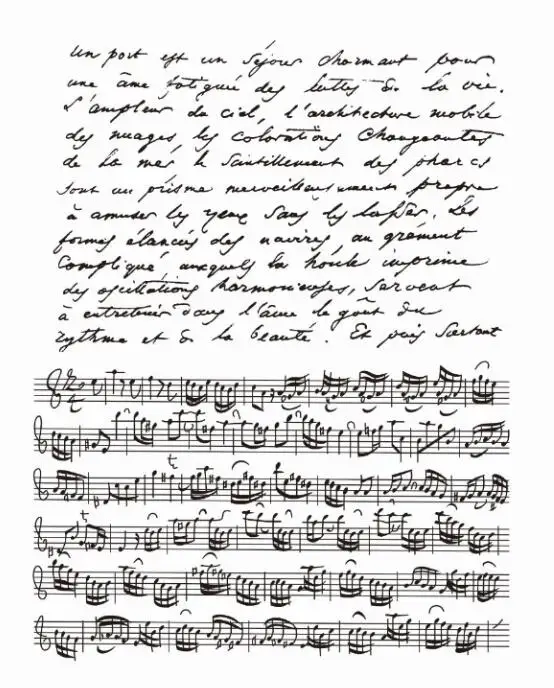 Un port est un séjour charmant pour
une âme fatiguée des luttes de la vie.
L'ampleur du ciel, l'architecture mobile
des nuages, les colorations changeantes
de la mer, le scintillement des phares
sont un prisme merveilleusement propre
à amuser les yeux sans les lasser. Les
formes élancées des navires, au gréement
compliqué, auxquels la houle imprime
des oscillations harmonieuses, servent
à entretenir dans l'âme le goût du
rythme et de la beauté. Et puis surtout